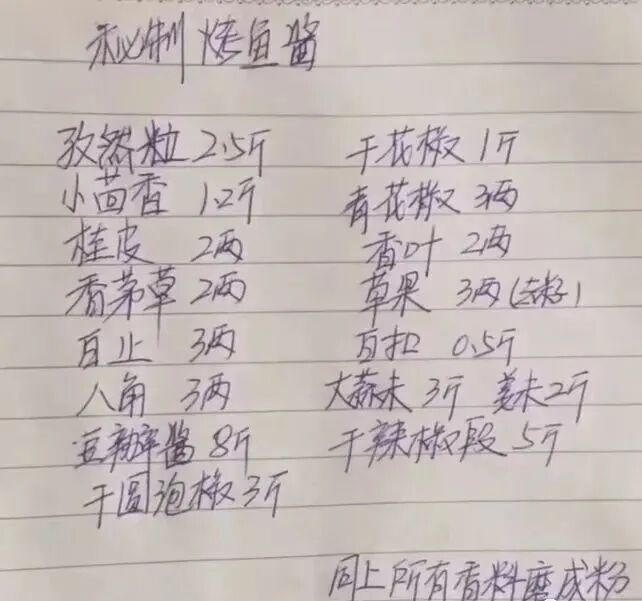 秘制 烤鱼酱
孜然粒 2.5斤 干花椒 1斤
小茴香 1.2斤 青花椒 3两
桂皮 2两 香叶 2两
香茅草 2两 草果 3两(去籽)
百止 3两 百扣 0.5斤
八角 3两 大蒜末 3斤 姜末2斤
豆瓣酱 8斤 干辣椒段 5斤
干圆泡椒 3斤
同上所有香料磨成粉